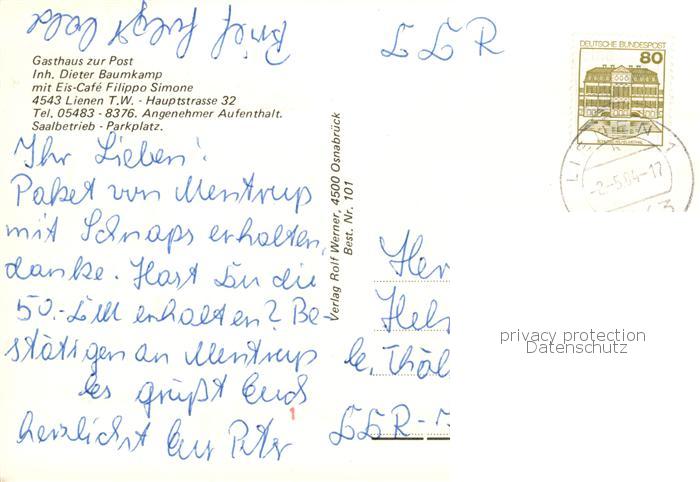 Brief folgt bald
DDR
Gasthaus zur Post
Inh. Dieter Baumkamp
mit Eis-Café Filippo Simone
4543 Lienen T.W. - Hauptstrasse 32
Tel. 05483 - 8376. Angenehmer Aufenthalt.
Saalbetrieb - Parkplatz.
Ihr Lieben!
Paket von Mentrup
mit Schnaps erhalten,
danke. Hast Du die
50.-DM erhalten? Be-
stätigen an Mentrup
Es grüßt Euch
herzlichst Euer Peter
1
Verlag Rolf Werner, 4500 Osnabrück
Best. Nr. 101
DEUTSCHE BUNDESPOST
80
-2.-5.84-17
Her
Hel
DDR-
privacy protection
Datenschutz